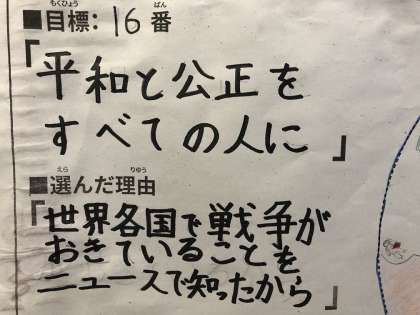 ■目標: 16番
「平和と公正を
すべての人に」
■選んだ理由
「世界各国で戦争が
おきていることを
ニュースで知ったから」